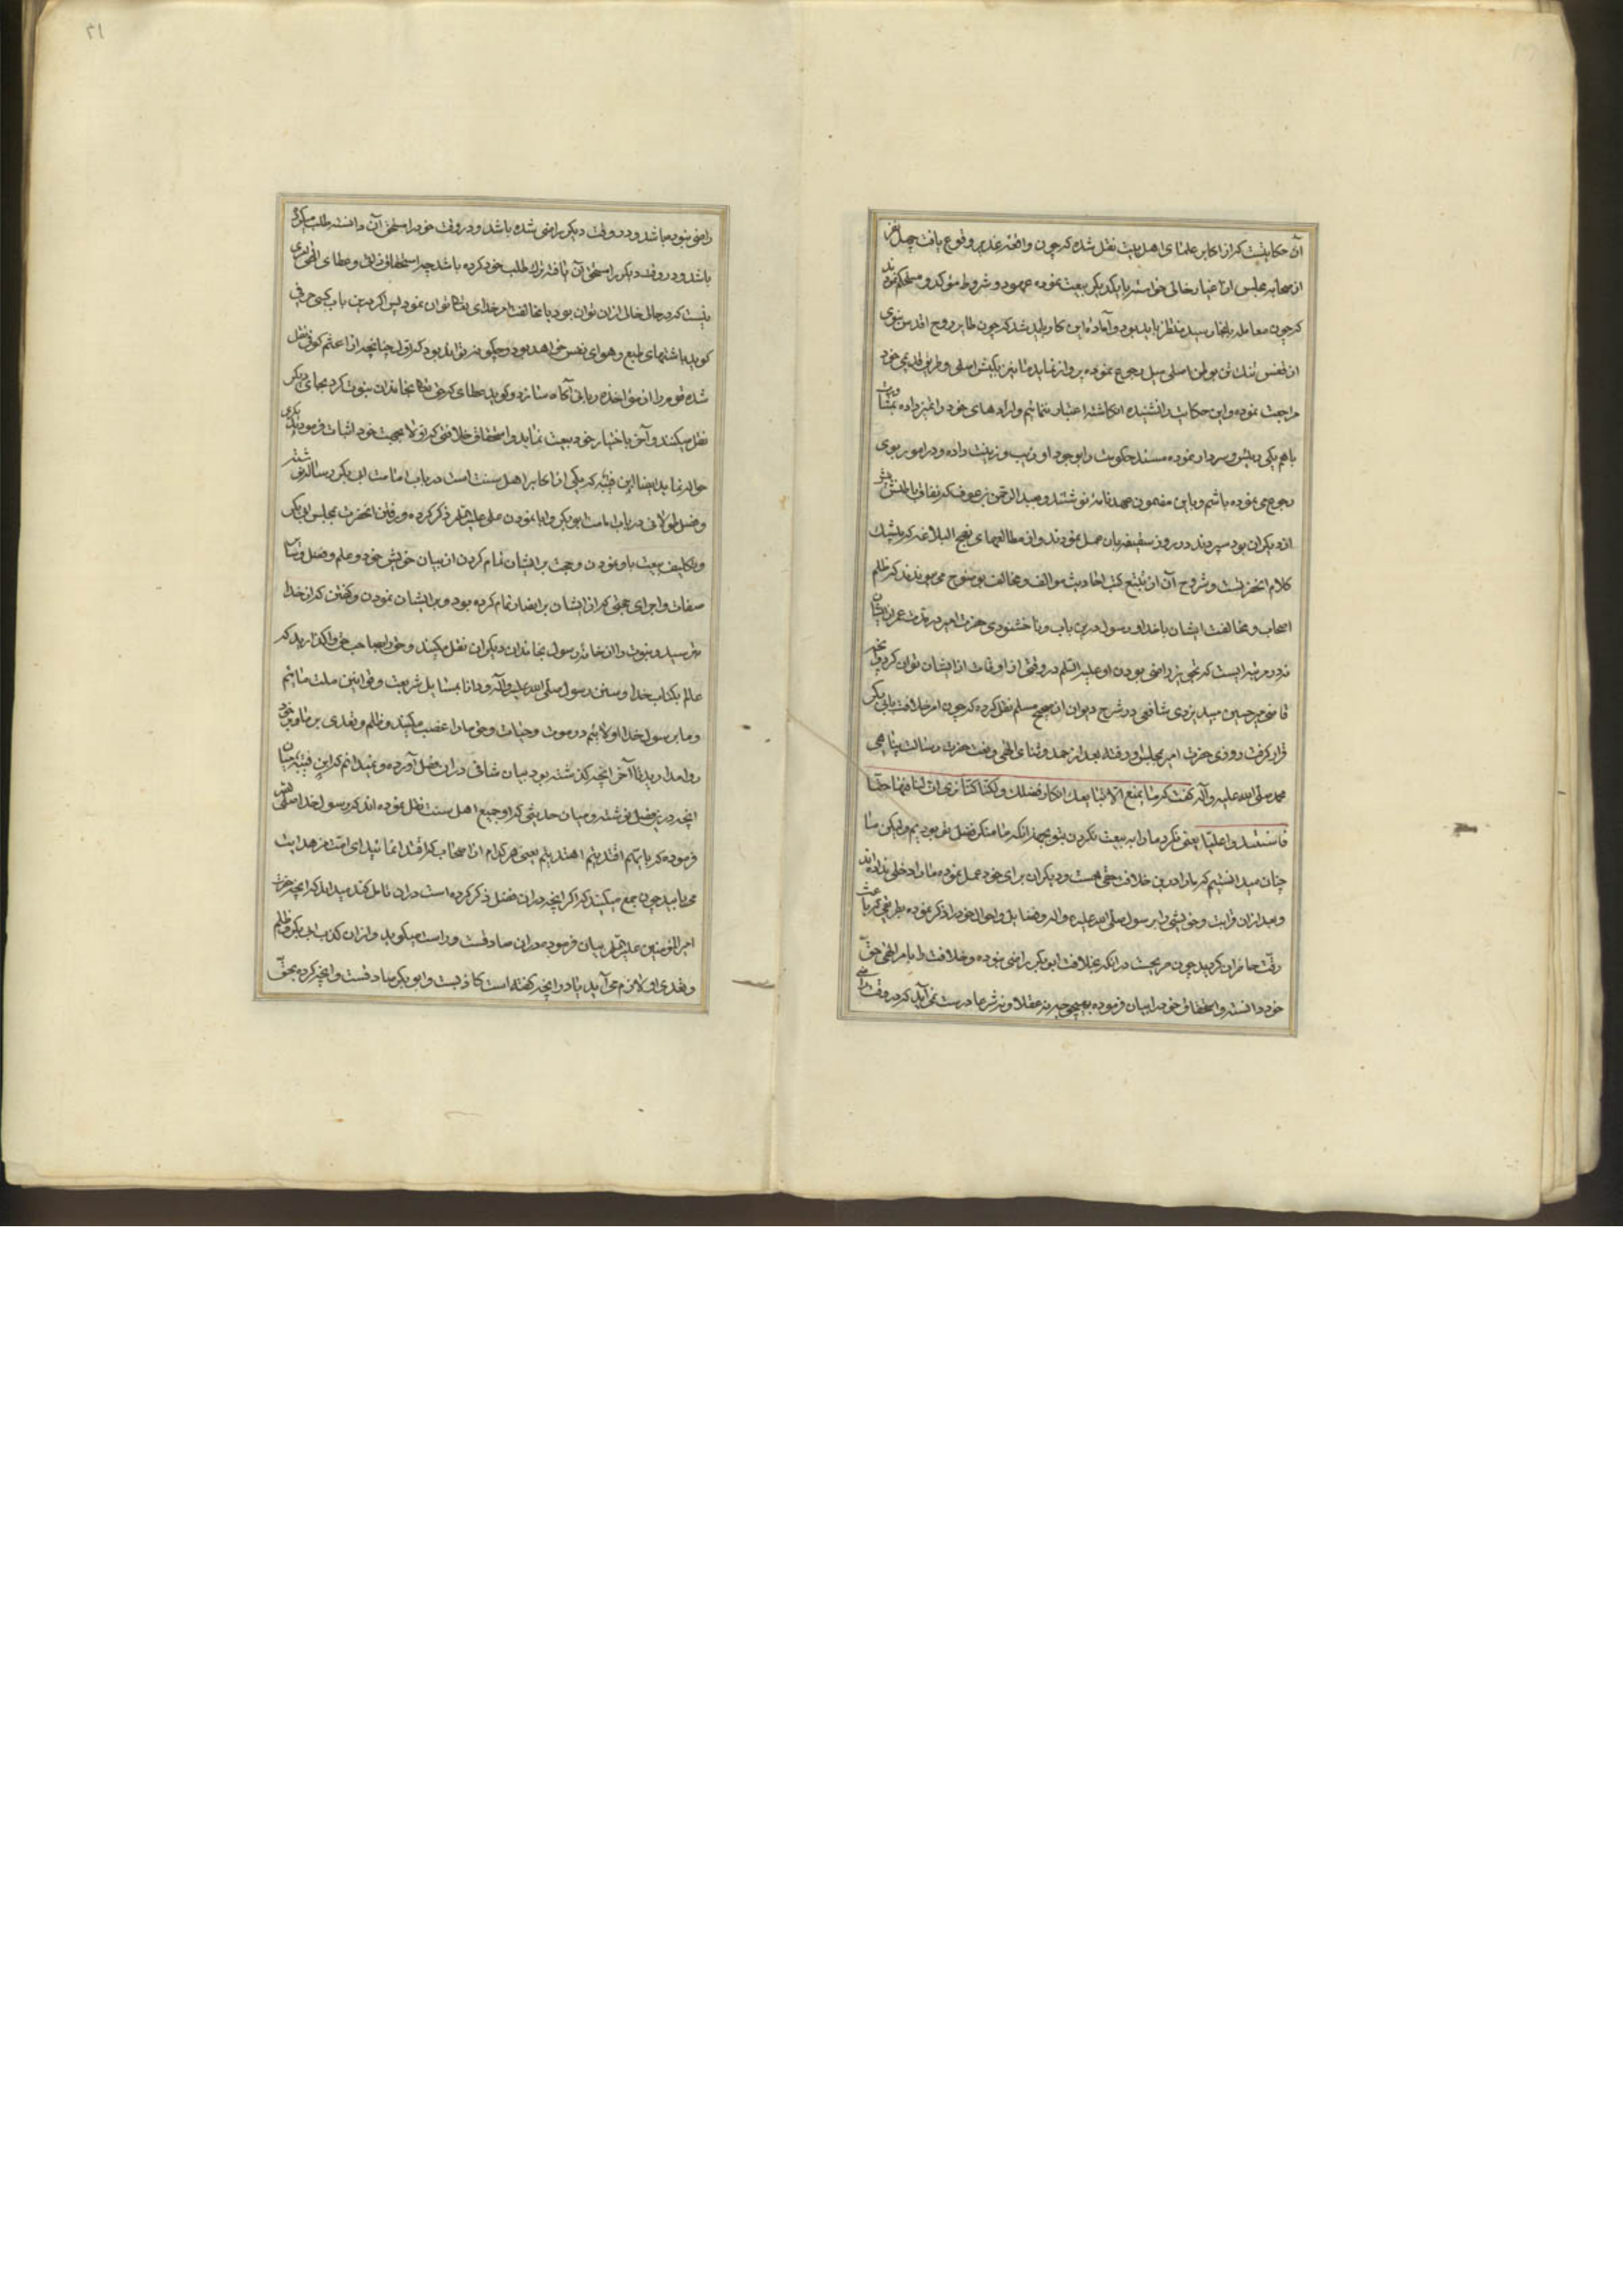 آن حکایتیست که از اکابر علمای اهل بیت نقل شده که چون واقعه غدیر وقوع یافت چهل نفر
از صحابه مجلس از اغیار خالی خواسته با یکدیگر بیعت نموده عهود و شروط مؤکد و مستحکم نمودند
که چون معامله باینجا رسید منتظر باید بود و آماده این کار باید شد که چون طایر روح اقدس نبوی
از قفس تنک تن بوطن اصلی میل رجوع نموده پرواز نماید ما نیز بکیش اصلی و طریق قدیمی خود
مراجعت نموده و این حکایت را نشنیده انکاشته اعتبار ننمائیم و اراده های خود را تغیر داده بمشاورت
با هم یکی رئیس و سردار نموده مسند حکومت را بوجود او زیب و زینت داده و در امور بوی
رجوع می نموده باشیم و باین مضمون عهدنامه نوشتند و بعبد الرحمن بن عوف که نفاق باطنش بیشتر
از دیکران بود سپردند در روز سقیفه بان عمل نمودند و از مطالعهای نهج البلاغه که بیشک
کلام انحضرتست و شروح آن از تتبع کتب احادیث موالف و مخالف بوضوح می پیوندند که ظلم
اصحاب و مخالفت ایشان با خدا و رسول درین باب و ناخشنودی حضرت امیر در مدت عمر از ایشان
نه در مرتبه ایست که تجویز راضی بودن او علیه السلم در وقتی از اوقات از ایشان توان کرد
قاضی میر حسین میبد یزدی شافعی در شرح دیوان از صحیح مسلم نقل کرده که چون امر خلافت بابی بکر
قرار کرفت روزی حضرت امیر بمجلس او رفته بعد از حمد و ثنای الهی و نعت حضرت رسالت پناهی
محمد صلی الله علیه وآله گفت که ما یمنع الا تبایعک انکار فضلک ولکنا کنا نری ان لنا فیها حقا
فاستبد واعلینا یعنی نکرد ما را به بیعت نکردن بتو بجهة انکه ما منکر فضل تو بودیم ولیکن ما
چنان میدانستیم که ما را درین خلافت حقی هست و دیکران برای خود عمل نموده ما را دخلی ندادند
و بعد از ان قرابت و خویشی را بر رسول صلی الله علیه واله و فضایل و احوال خود را ذکر نموده بطریقی که باعث
رقت حاضران کردید چون صریحست در انکه بخلافت ابو بکر راضی نبوده و خلافت را بامر الهی حق
خود دانسته و استحقاق خود را بیان فرموده بهیچوجه نه عقلا و نه شرعا درست نمی آید که در وقتی
راضی نبوده باشد و در وقت دیکر راضی شده باشد و در وقت خود را مستحق آن دانسته طلب میکرده
باشد و در وقت دیکر را مستحق آن یافته ترک طلب خود کرده باشد چه استحقاق ذاتی و عطای الهی امری
نیست که در حالی خالی از ان توان بود یا مخالفت امر خدای تعالی توان نمود پس اکر درین باب کسی حرفی
کوید باشتهای طبع و هوای نفس خواهد بود و چکونه تواند بود که اول چنانچه از اعثم کوفی نقل
شده قوم را از مؤاخذه ربانی آکاه سازد و کوید عطای که حق تعالی بخاندان نبوت کرد بجای دیکر
نقل میکنند و آخر باختیار خود بیعت نماید و استحقاق خلافتی که اولا بجهت خود اثبات فرموده
حواله نماید ایضا ابن قتیبه که یکی از اکابر اهل سنت است در باب امامت ابی بکر رساله نوشته
و فصل طولانی در باب امامت ابو بکر و ابا نمودن علی علیه السلم ذکر کرده و رفتن انحضرت بمجلس ابی بکر
و تکلیف بیعت باو نمودن و حجت بر ایشان تمام کردن از بیان خویش خود و علم و فضل و سایر
صفات و اجرای حجتی که از ایشان بر انصار تمام کرده بود و بر ایشان نمودن و گفتن که از خدا
بترسید و نبوت را از خانه رسول بخاندان دیکران نقل مکنید و حق را بصاحب حق واکذارید که
عالم بکتاب خدا و سنن رسول صلی الله علیه وآله و دانا بمسایل شریعت و قوانین ملت مائیم
و ما بر رسول خدا اولائیم در موت و حیات و حق ما را غصب مکنید و ظلم و تعدی بر ما و بر خود
روا مدارید تا آخر انچه کذشته بود بیان شافی در ان فصل آورده و نمیدانم که ابن قتیبه میان
انچه درین فصل نوشته و میان حدیثی که او و جمیع اهل سنت نقل نموده اند که رسول خدا صلی
فرموده که بایهم اقتدیتم اهتدیتم یعنی هر کدام از اصحاب که اقتدا نمائید ای امت من هدایت
می یابید چون جمع میکنند که اکر انچه در ان فصل ذکر کرده است در ان تامل کند میداند که انچه حضرت
امیر المؤمنین علیه السلم بیان فرموده در ان صادقست و راست میکوید و از ان کذب ابی بکر و ظلم
و تعدی او لازم می آید یا در انچه کفته است کاذبست و ابو بکر صادقست و انچه کرده بحق